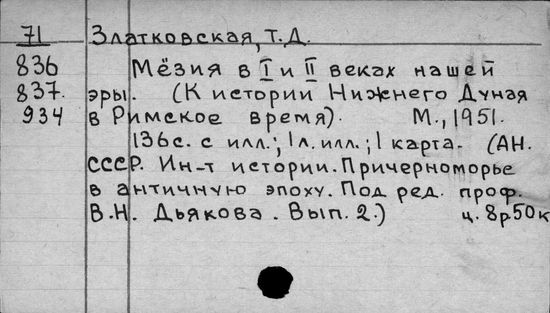 71 Златковская, Т.Д.
836 Мёзия в I и II веках нашей
837. эры. (К истории Нижнего Дуная
934 в Римское время). М., 1951.
136с. с илл.; 1 л. илл.; 1 карта. (АН.
СССР. Ин-т истории. Причерноморье
в античную эпоху. Под ред. проф.
В.Н. Дьякова. Вып. 2.) ц. 8р.50к